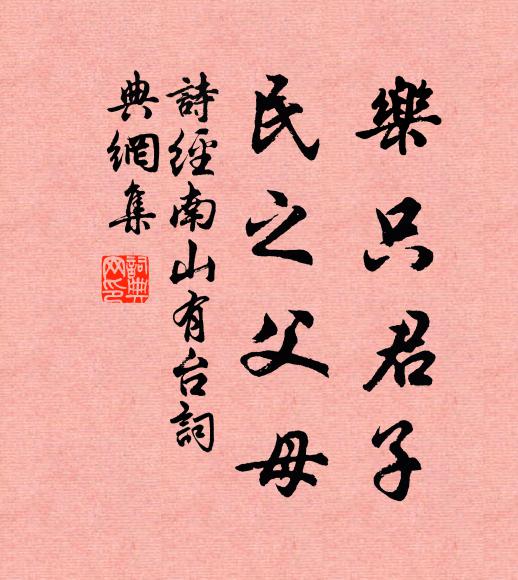 樂只君子
民之父母
詩經南山有台詞
典網集
詞典網印